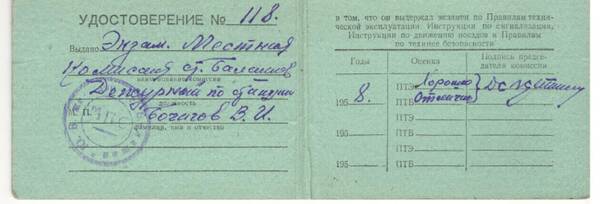 УДОСТОВЕРЕНИЕ № 118.
Выдано Экзам. Местная
Комиссия ст. Балашов
наименование комиссии
Дежурный по станции
должность
М. П. Бочигов В. И.
фамилия, имя и отчество
в том, что он выдержал экзамен по Правилам техни-
ческой эксплуатации, Инструкции по сигнализации,
Инструкции по движению поездов и Правилам
по технике безопасности
Годы Оценка Подпись предсе-
дателя комиссии
195 8. ПТЭ Хорошо
ПТБ Отлично
195 ПТЭ
ПТБ
195 ПТЭ
ПТБ